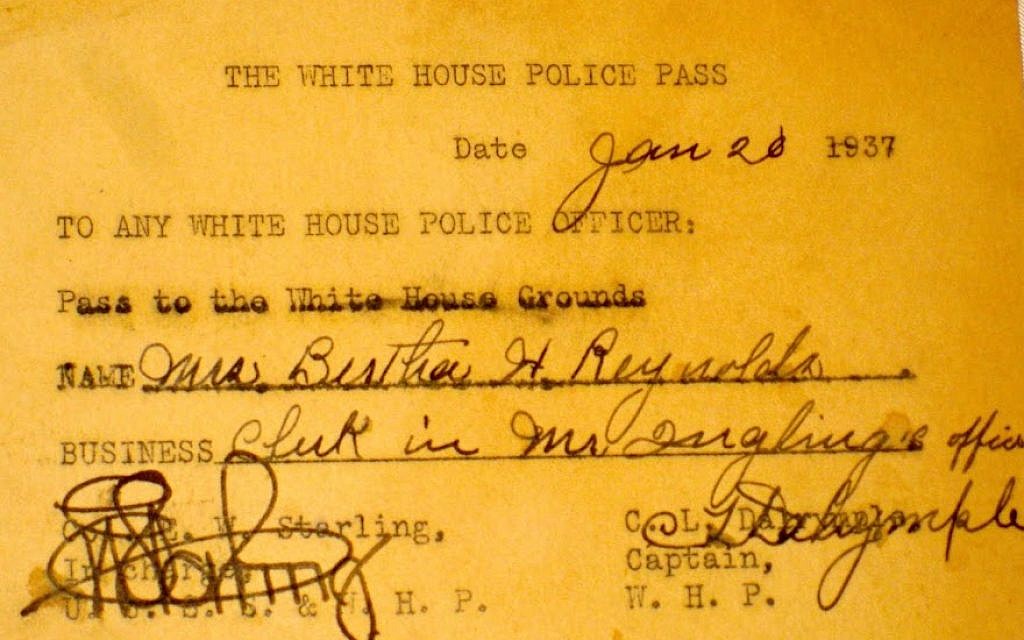 THE WHITE HOUSE POLICE PASS
Date Jan 20 1937
TO ANY WHITE HOUSE POLICE OFFICER:
Pass to the White House Grounds
NAME Mrs. Bertha H. Reynolds.
BUSINESS Clerk in Mr Ingling's office
E. W. Starling, C. L. Dalrymple
In charge, Captain,
U. S. S. S. & W. H. P. W. H. P.